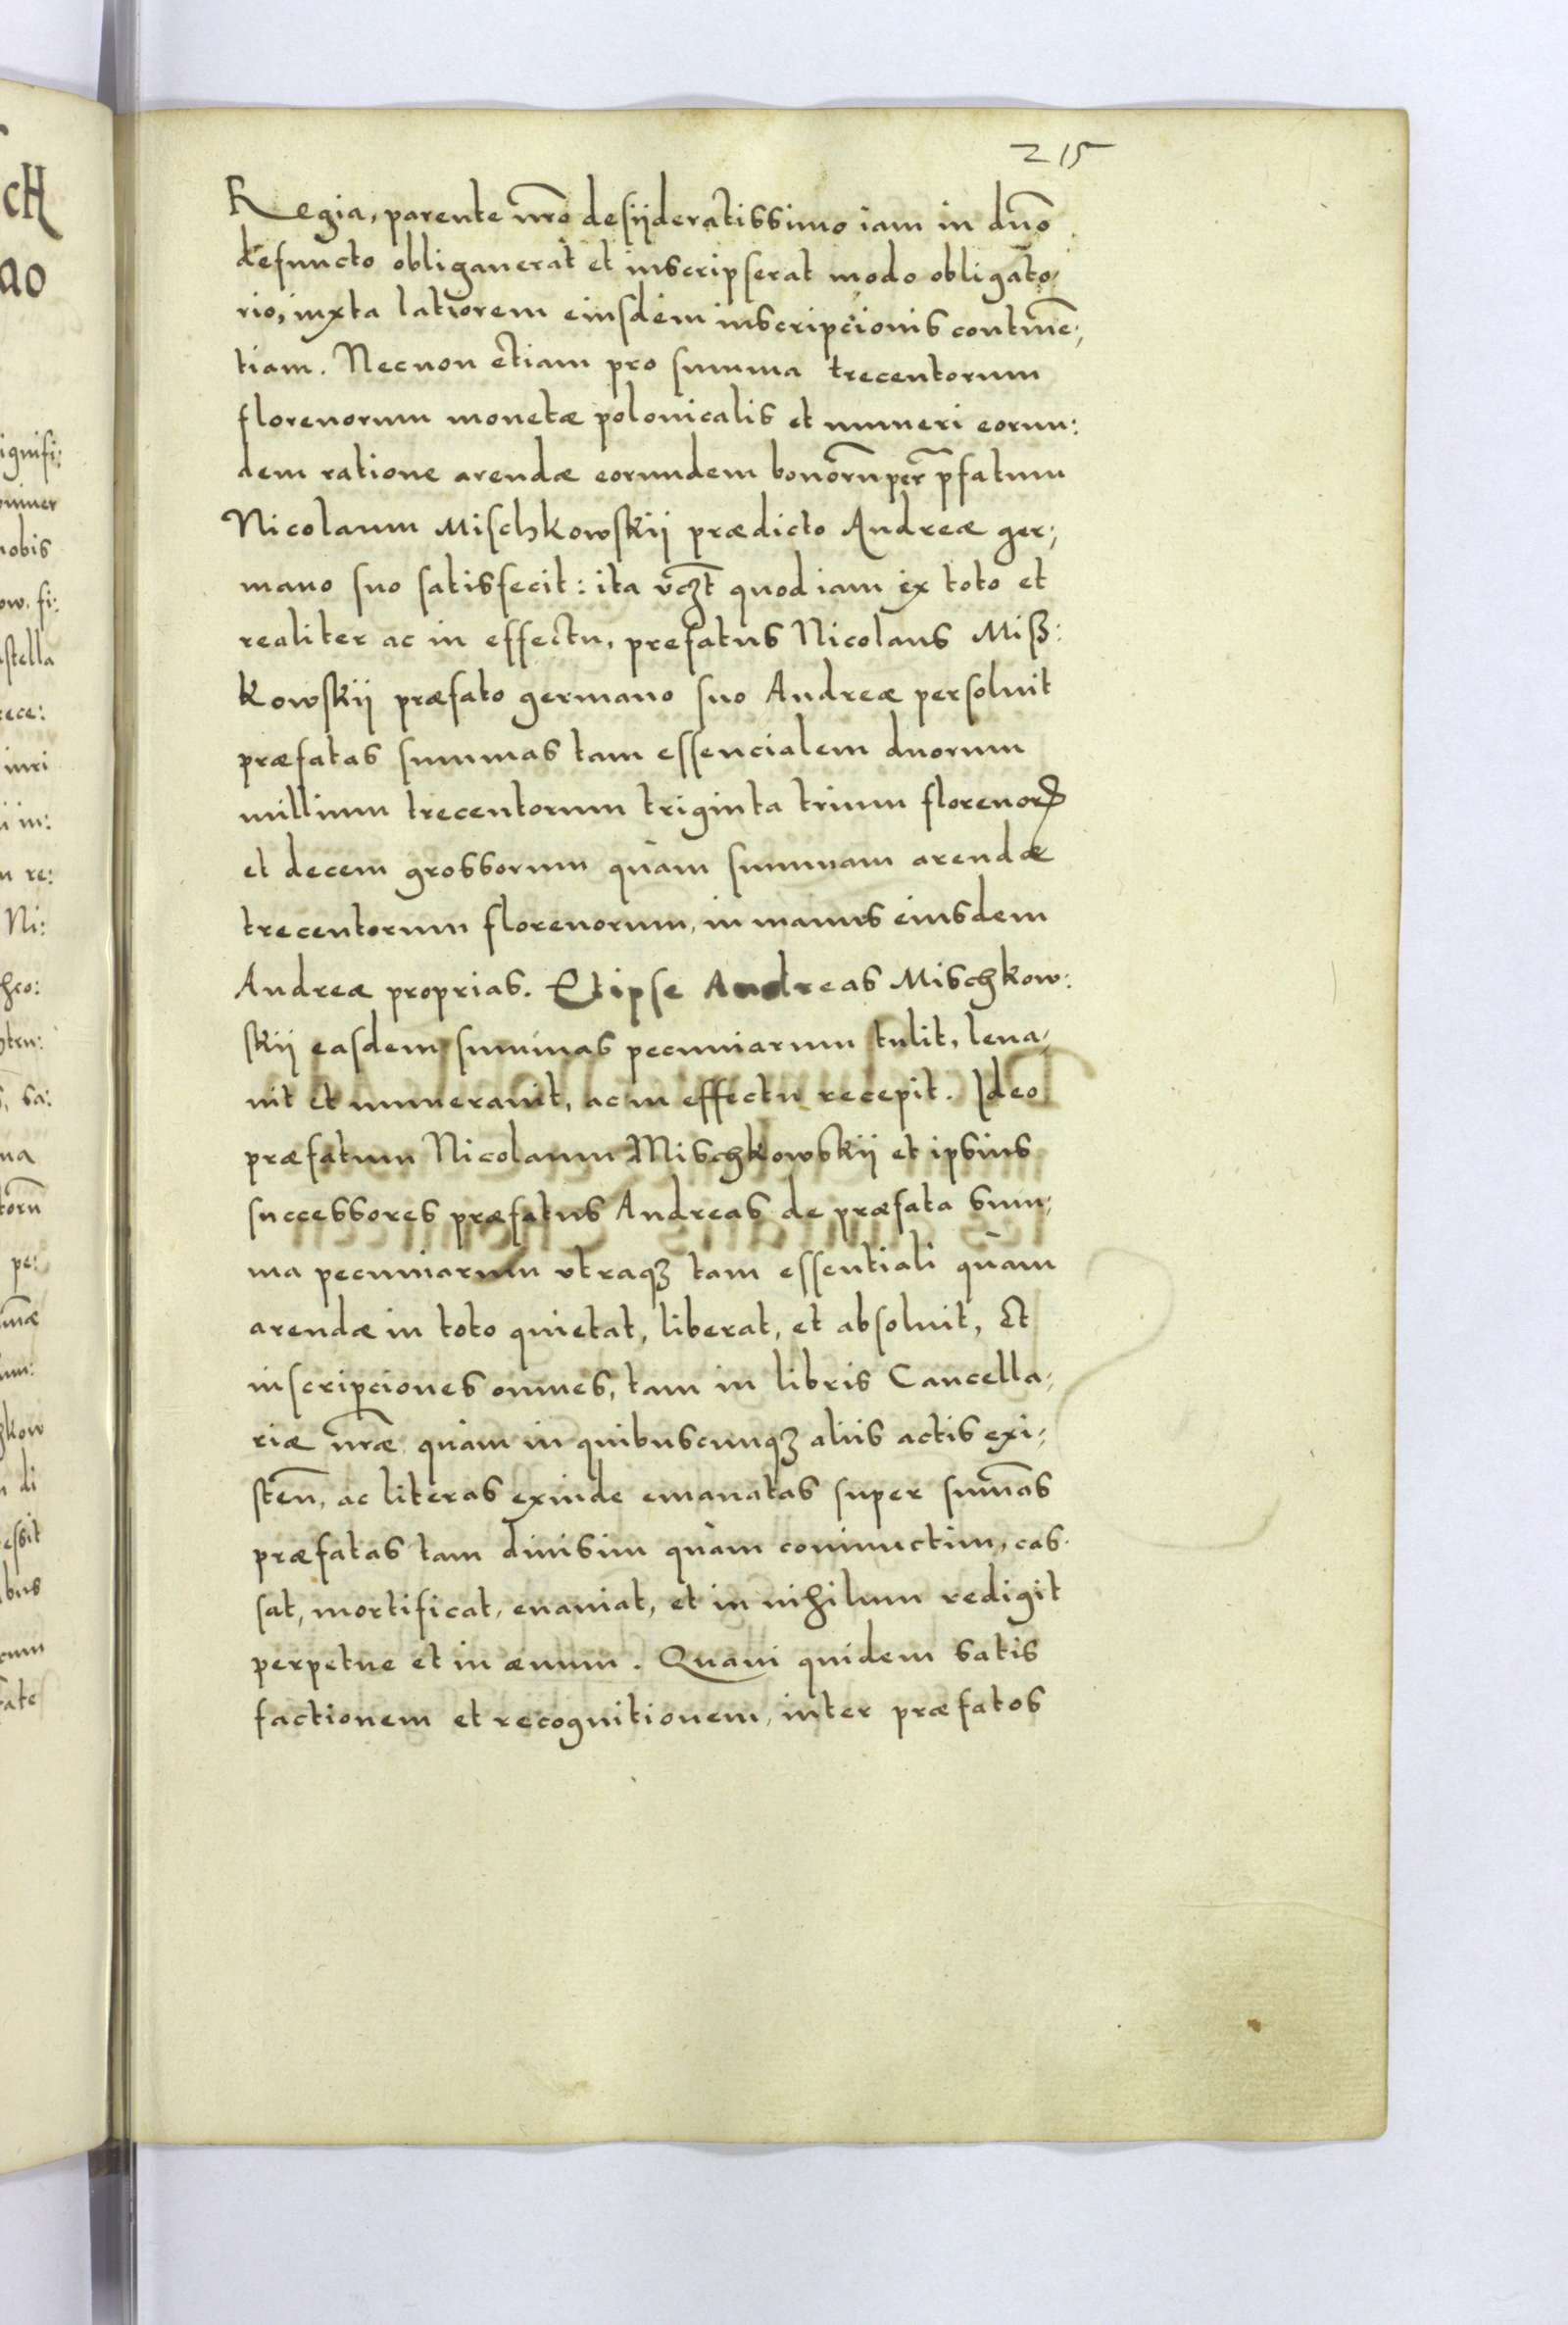 215
Regia, parente nr̃o desiideratissimo iam in dño
defuncto obligauerat et inscripserat modo obligato,
rio, iuxta latiorem eiusdem inscripcionis continẽ,
tiam. Necnon etiam pro summa trecentorum
florenorum monetæ polonicalis et numeri eorun:
dem ratione arendæ eorundem bonorũ per p̃fatum
Nicolaum Mischkowskii prædicto Andreæ ger,
mano suo satisfecit: ita vꝫt quod iam ex toto et
realiter ac in effectu, prefatus Nicolaus Miß:
kowskii præfato germano suo Andreæ persoluit
præfatas summas tam essencialem duorum
millium trecentorum triginta trium florenorꝝ
et decem grossorum quàm summam arendæ
trecentorum florenorum, in manus eiusdem
Andreæ proprias. Et ipse Andreas Mischkow:
skii easdem summas pecuniarum tulit, leua,
uit et numerauit, ac in effectu recepit. Ideo
præfatum Nicolaum Mischkowskii et ipsius
successores præfatus Andreas de præfata sum,
ma pecuniarum vtraqꝫ tam essentiali quàm
arendæ in toto quietat, liberat, et absoluit, Et
inscripciones omnes, tam in libris Cancella,
riæ nr̃æ quàm in quibuscunqꝫ aliis actis exi,
steñ, ac literas exinde emanatas super sum̃as
præfatas tam diuisim quàm coniunctim, cas,
sat, mortificat, euaniat, et in nihilum redigit
perpetue et in æuum. Quam quidem satis
factionem et recognitionem, inter præfatos